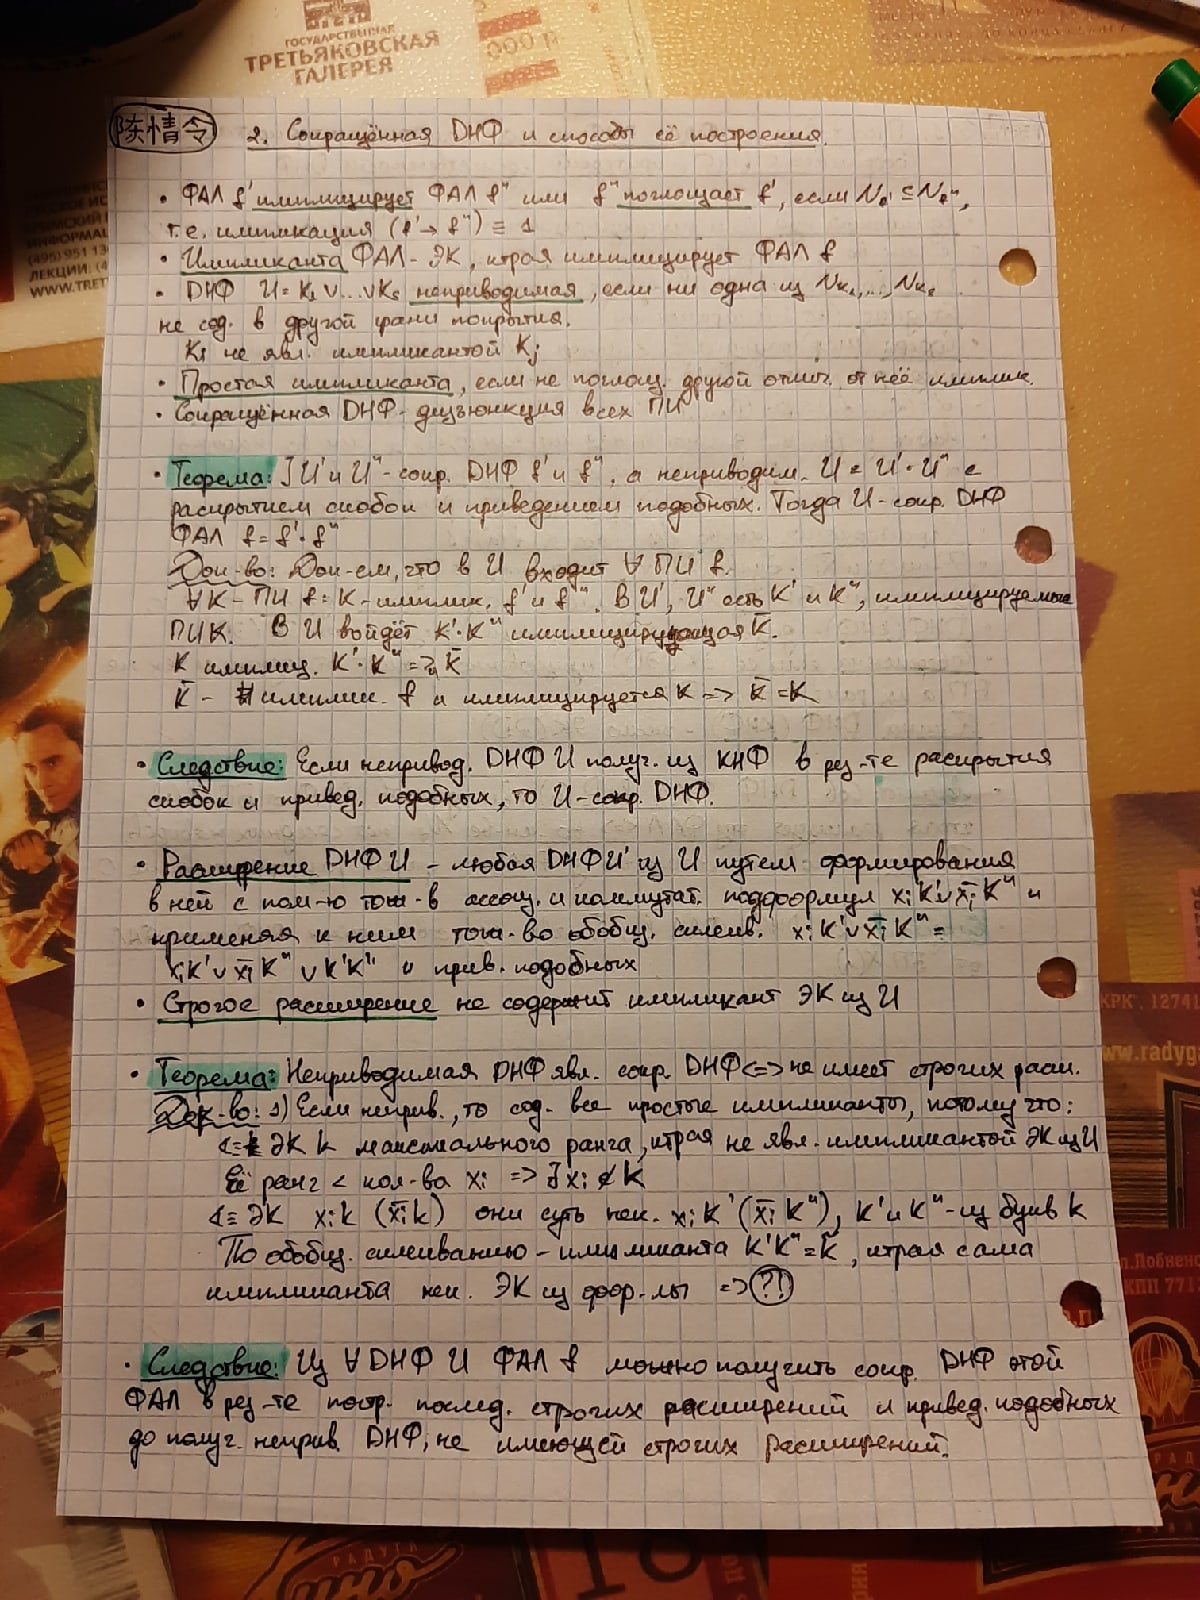 ГОСУДАРСТВЕННАЯ
ТРЕТЬЯКОВСКАЯ
ГАЛЕРЕЯ
000 р
陈情令 2. Сокращённая ДНФ и способы её построения.
• ФАЛ f' имплицирует ФАЛ f" или f" поглощает f', если Nf' ⊆ Nf",
т.е. импликация (f' → f") ≡ 1
• Импликанта ФАЛ - ЭК, ктрая имплицирует ФАЛ f
• ДНФ U = K₁ ∨ ... ∨ Ks неприводимая, если ни одна из Nк₁, ..., Nкs
не сод. в другой грани покрытия.
Ki не явл. импликантой Kj
• Простая импликанта, если не поглощ. другой отлич. от неё имплик.
• Сокращённая ДНФ - дизъюнкция всех ПИ
• Теорема: ] U' и U" - сокр. ДНФ f' и f", а неприводим. U = U' · U" с
раскрытием скобок и приведением подобных. Тогда U - сокр. ДНФ
ФАЛ f = f' · f"
Док-во: Док-ем, что в U входит ∀ ПИ f.
∀ K - ПИ f: K - имплик. f' и f". В U', U" есть K' и K", имплицируемые
ПИ K. В U войдёт K' · K" имплицирующая K̄.
K имплиц. K' · K" => и K̄
K̄ - имплик. f и имплицируется K => K̄ = K
• Следствие: Если непривод. ДНФ U получ. из КНФ в рез-те раскрытия
скобок и привед. подобных, то U - сокр. ДНФ.
• Расширение ДНФ U - любая ДНФ U' из U путем формирования
в ней с пом-ю тож-в ассоц. и коммутат. подформул xiK' ∨ x̄iK" и
применяя к ним тож-во обобщ. склеив. xiK' ∨ x̄iK" =
xiK' ∨ x̄iK" ∨ K'K" и прив. подобных
• Строгое расширение не содержит импликант ЭК из U
• Теорема: Неприводимая ДНФ явл. сокр. ДНФ <=> не имеет строгих расш.
Док-во: 1) Если неприв., то сод. все простые импликанты, потому что:
ЭК k максимального ранга, ктрая не явл. импликантой ЭК из U
Её ранг < кол-ва xi => ∃ xi ∉ k
ЭК xik (x̄ik) они суть имп. xiK' (x̄iK"), K' и K" - из букв k
По обобщ. склеиванию - импликанта K'K" = K̄, ктрая сама
импликанта нек. ЭК из фор-лы => ?!
• Следствие: Из ∀ ДНФ U ФАЛ f можно получить сокр. ДНФ этой
ФАЛ в рез-те постр. послед. строгих расширений и привед. подобных
до получ. неприв. ДНФ, не имеющей строгих расширений.
(495) 951
ЛЕКЦИИ:
WWW.TRET
КРК , 1274
ww.radyga
п.Лобненс
КПП 771
РАДУГА